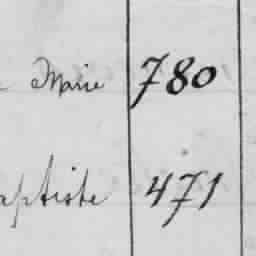 Marie 780
aptiste 471